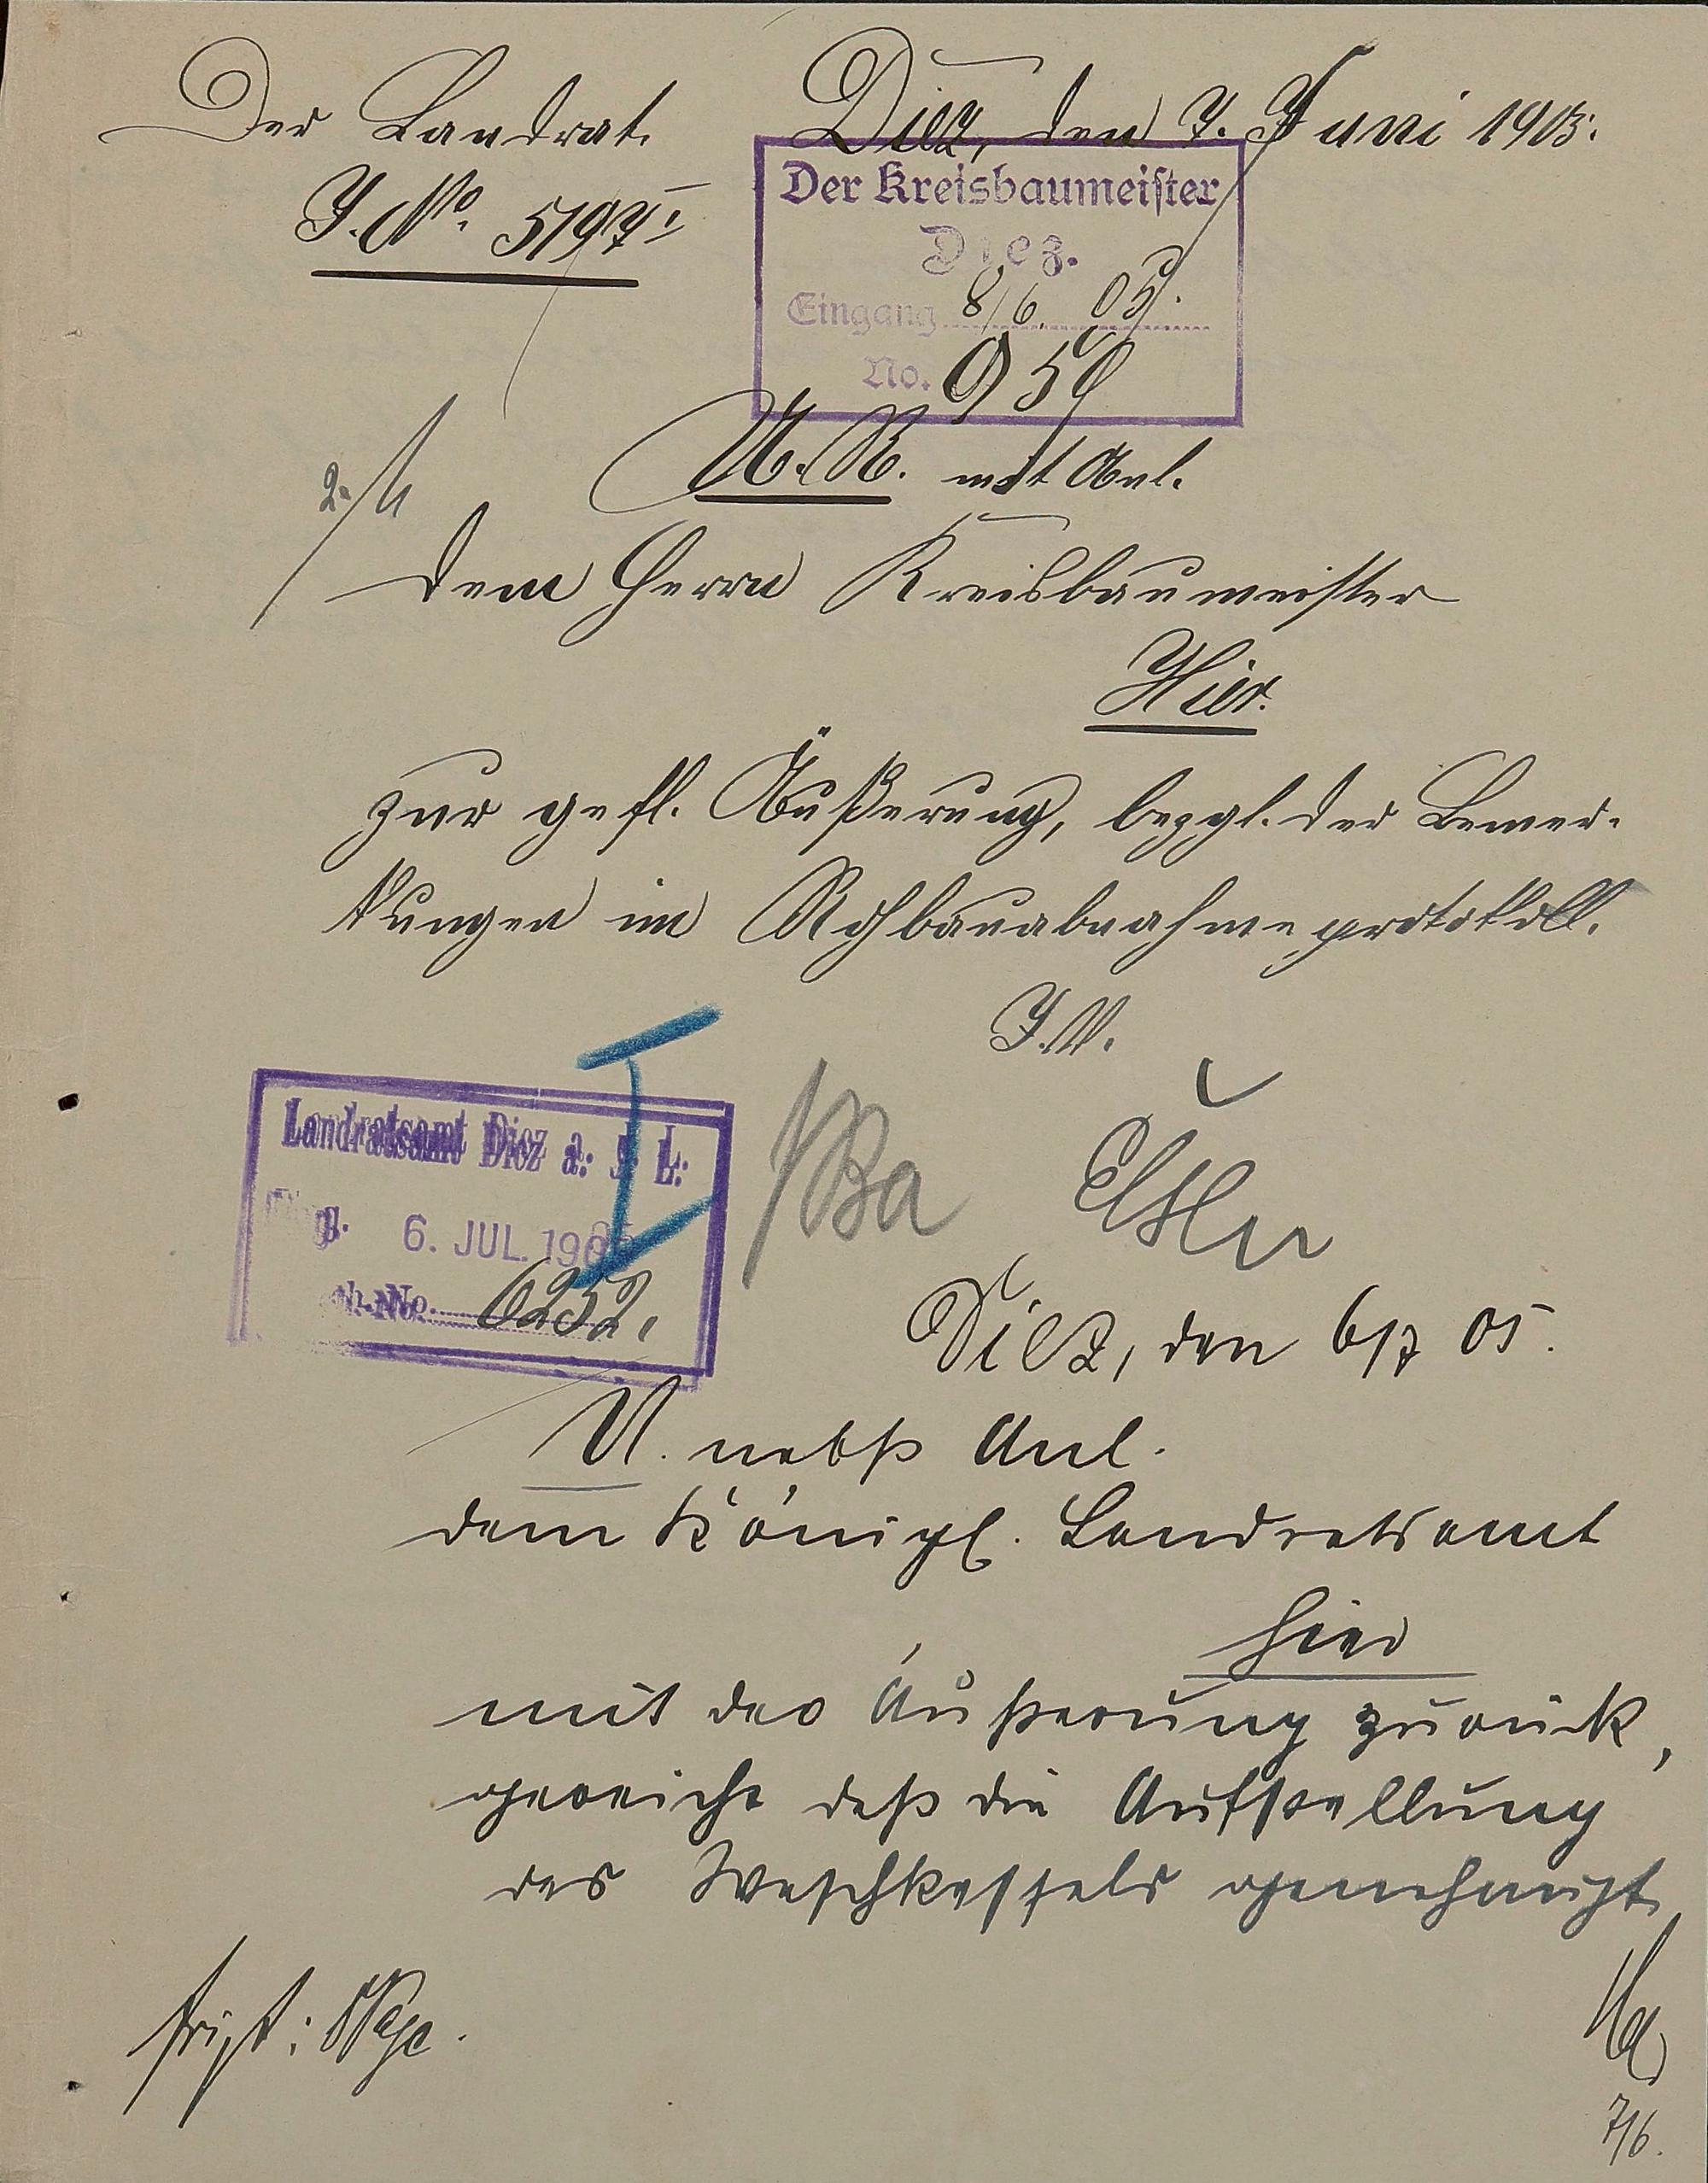 Der Landrat.
Diez, den 7. Juni 1905.
J. No. 5197 I
Der Kreisbaumeister
Diez.
Eingang 8/6. 05.
No. 959
2./
U. R. mit Anl.
dem Herrn Kreisbaumeister
Hier.
zur gefl. Äußerung, bezgl. der Bemer-
kungen im Rohbauabnahmeprotokoll.
J. V.
I
Landratsamt Diez a. d. L.
Eing. 6. JUL. 1905
No. 6252.
Ba
Diez, den 6/7 05.
U. nebst Anl.
dem Königl. Landratsamt
hier
mit der Äußerung zurück,
gereicht daß die Aufstellung
des Waschkessels genehmigt
7/6.